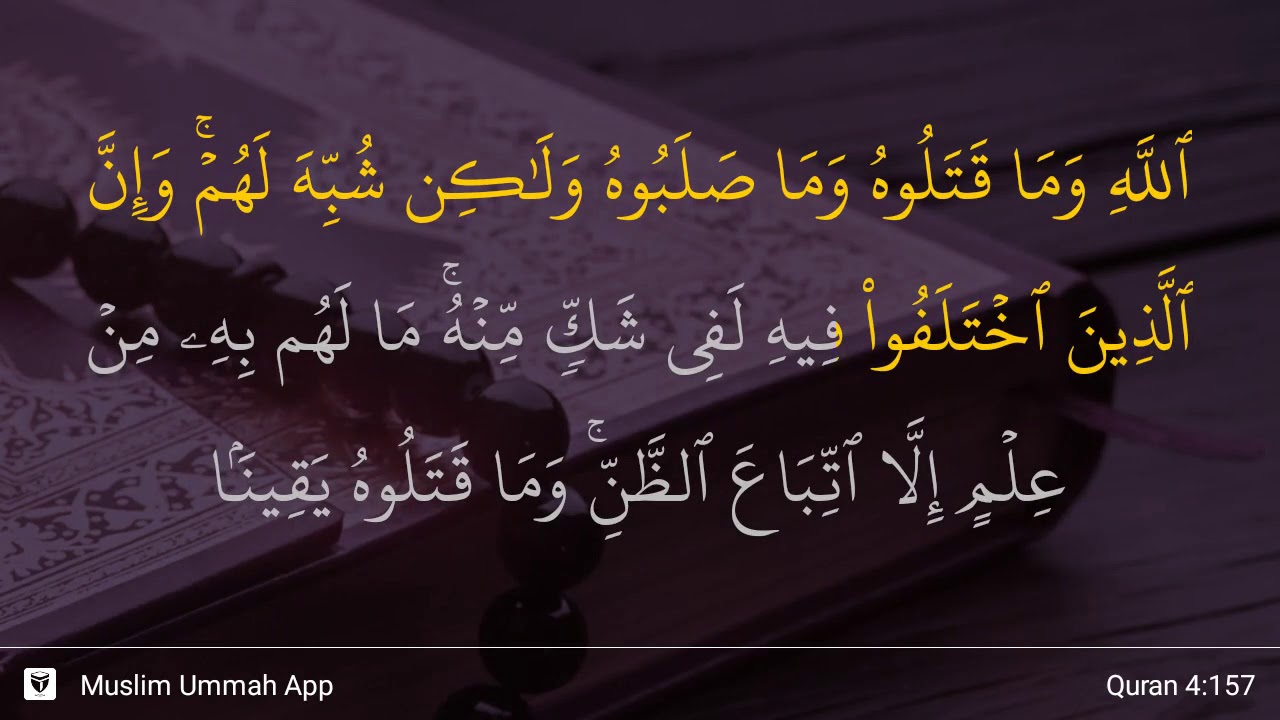 ٱللَّهِ وَمَا قَتَلُوهُ وَمَا صَلَبُوهُ وَلَـٰكِن شُبِّهَ لَهُمْ ۚ وَإِنَّ
ٱلَّذِينَ ٱخْتَلَفُوا۟ فِيهِ لَفِى شَكٍّ مِّنْهُ ۚ مَا لَهُم بِهِۦ مِنْ
عِلْمٍ إِلَّا ٱتِّبَاعَ ٱلظَّنِّ ۚ وَمَا قَتَلُوهُ يَقِينًۢا
Muslim Ummah App
Quran 4:157